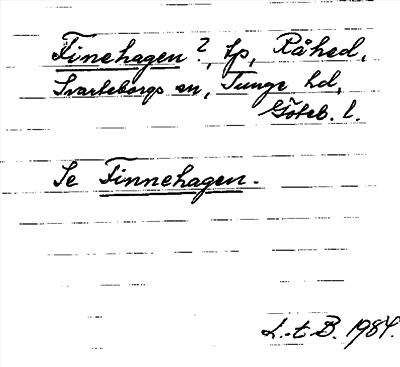 Finehagen?, tp, Råhed,
Svarteborgs sn, Tunge hd,
Göteb. l.
Se Finnehagen.
L.-t B. 1984.